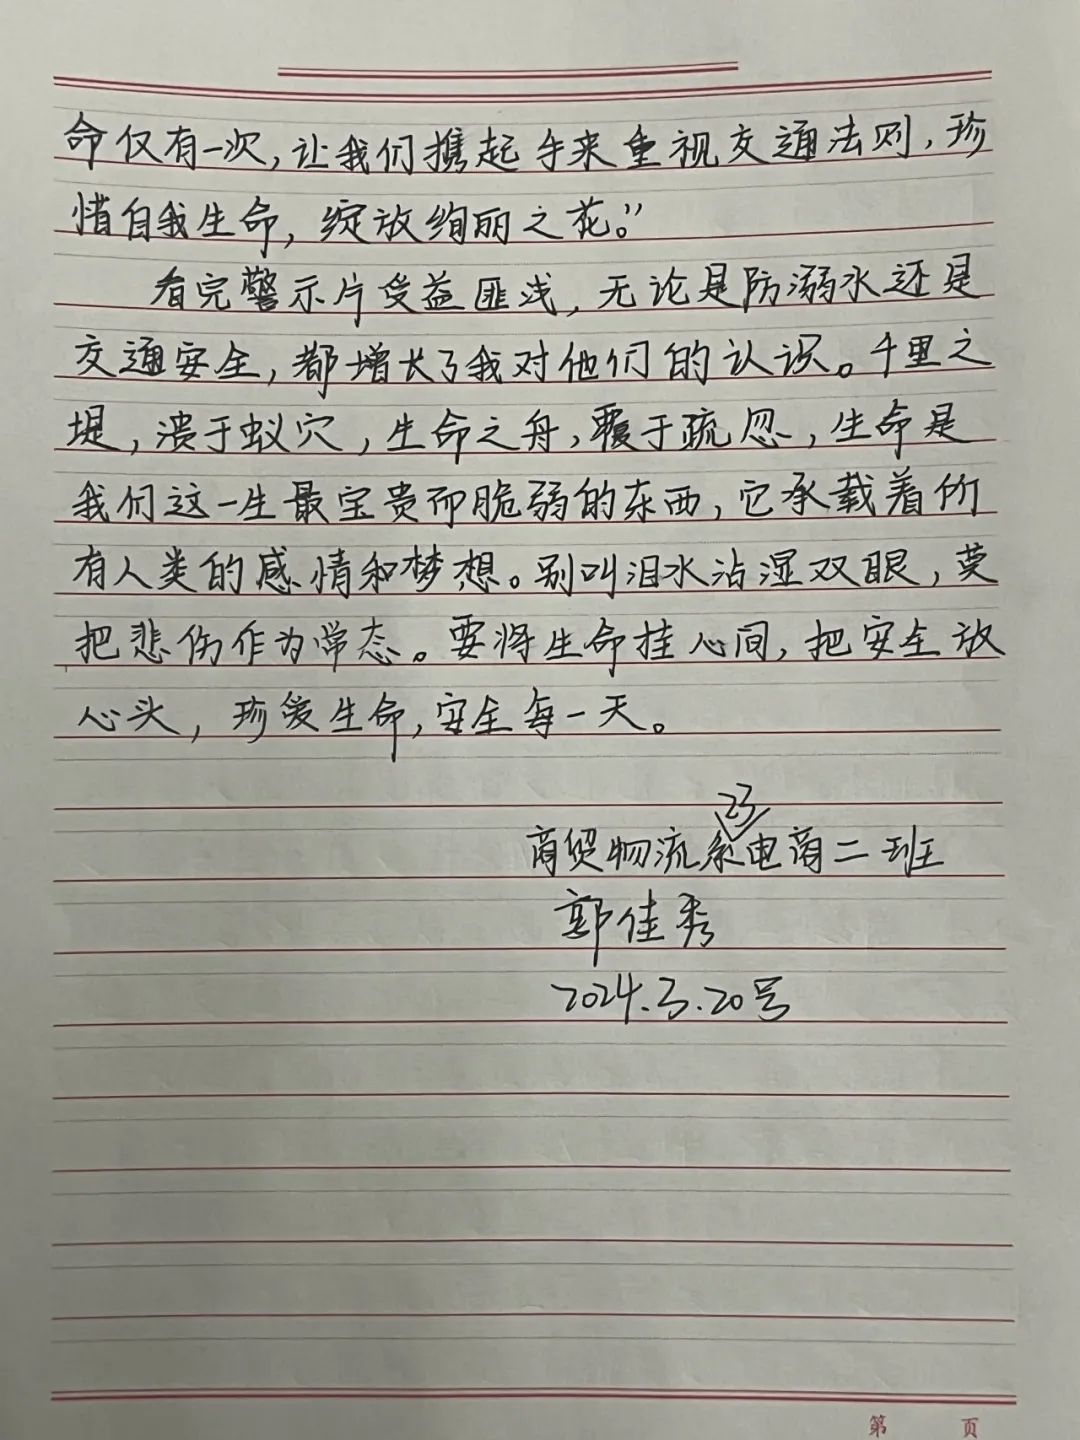 命仅有一次，让我们携起手来重视交通法则，珍
惜自我生命，绽放绚丽之花。”
看完警示片受益匪浅，无论是防溺水还是
交通安全，都增长了我对他们的认识。千里之
堤，溃于蚁穴，生命之舟，覆于疏忽，生命是
我们这一生最宝贵而脆弱的东西，它承载着所
有人类的感情和梦想。别叫泪水沾湿双眼，莫
把悲伤作为常态。要将生命挂心间，把安全放
心头，珍爱生命，安全每一天。
商贸物流系23电商二班
郭佳秀
2024.3.20号
第 页